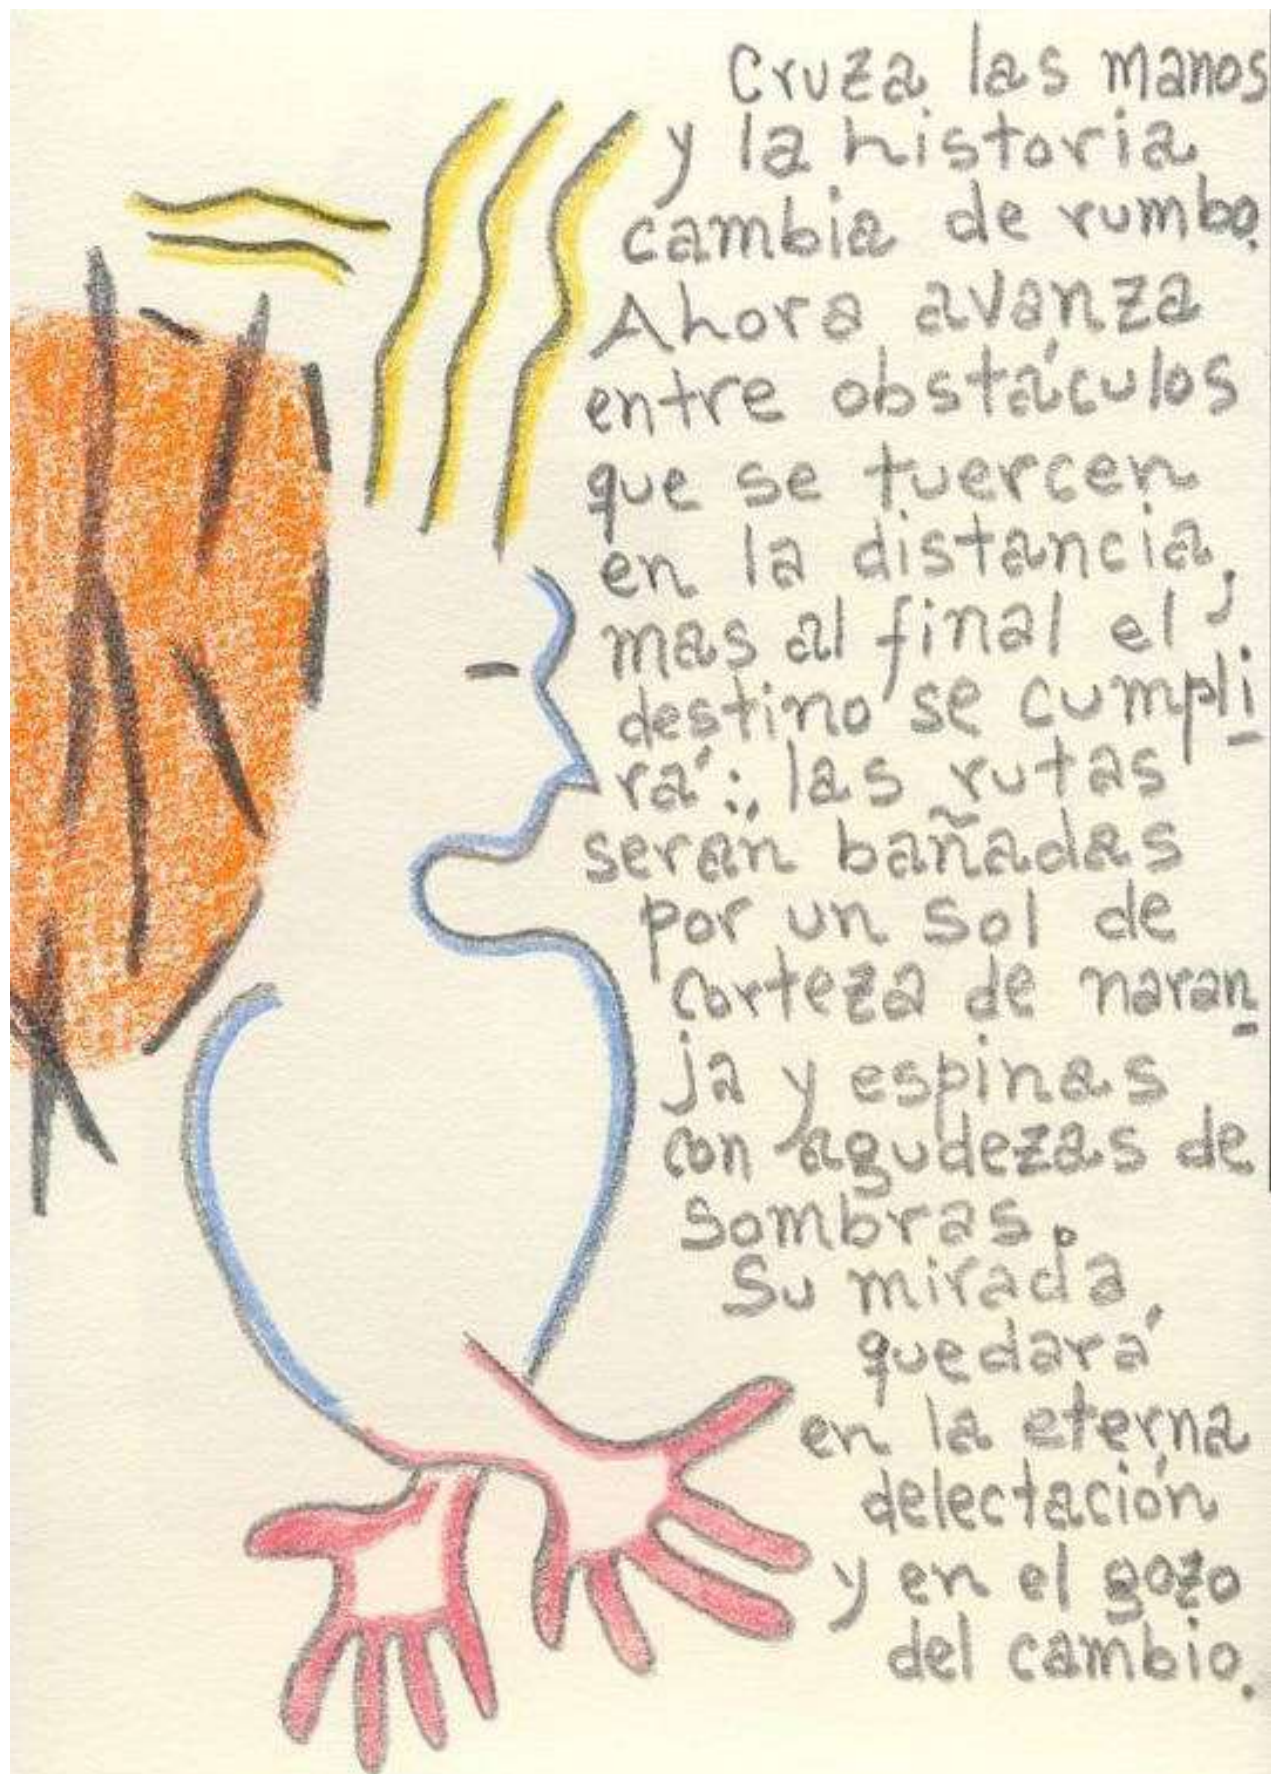 Cruza las manos
y la historia
cambia de rumbo.
Ahora avanza
entre obstáculos
que se tuercen
en la distancia,
mas al final el
destino se cumpli-
rá: las rutas
serán bañadas
por un sol de
corteza de naran-
ja y espinas
con agudezas de
sombras.
Su mirada
quedará
en la eterna
delectación
y en el gozo
del cambio.